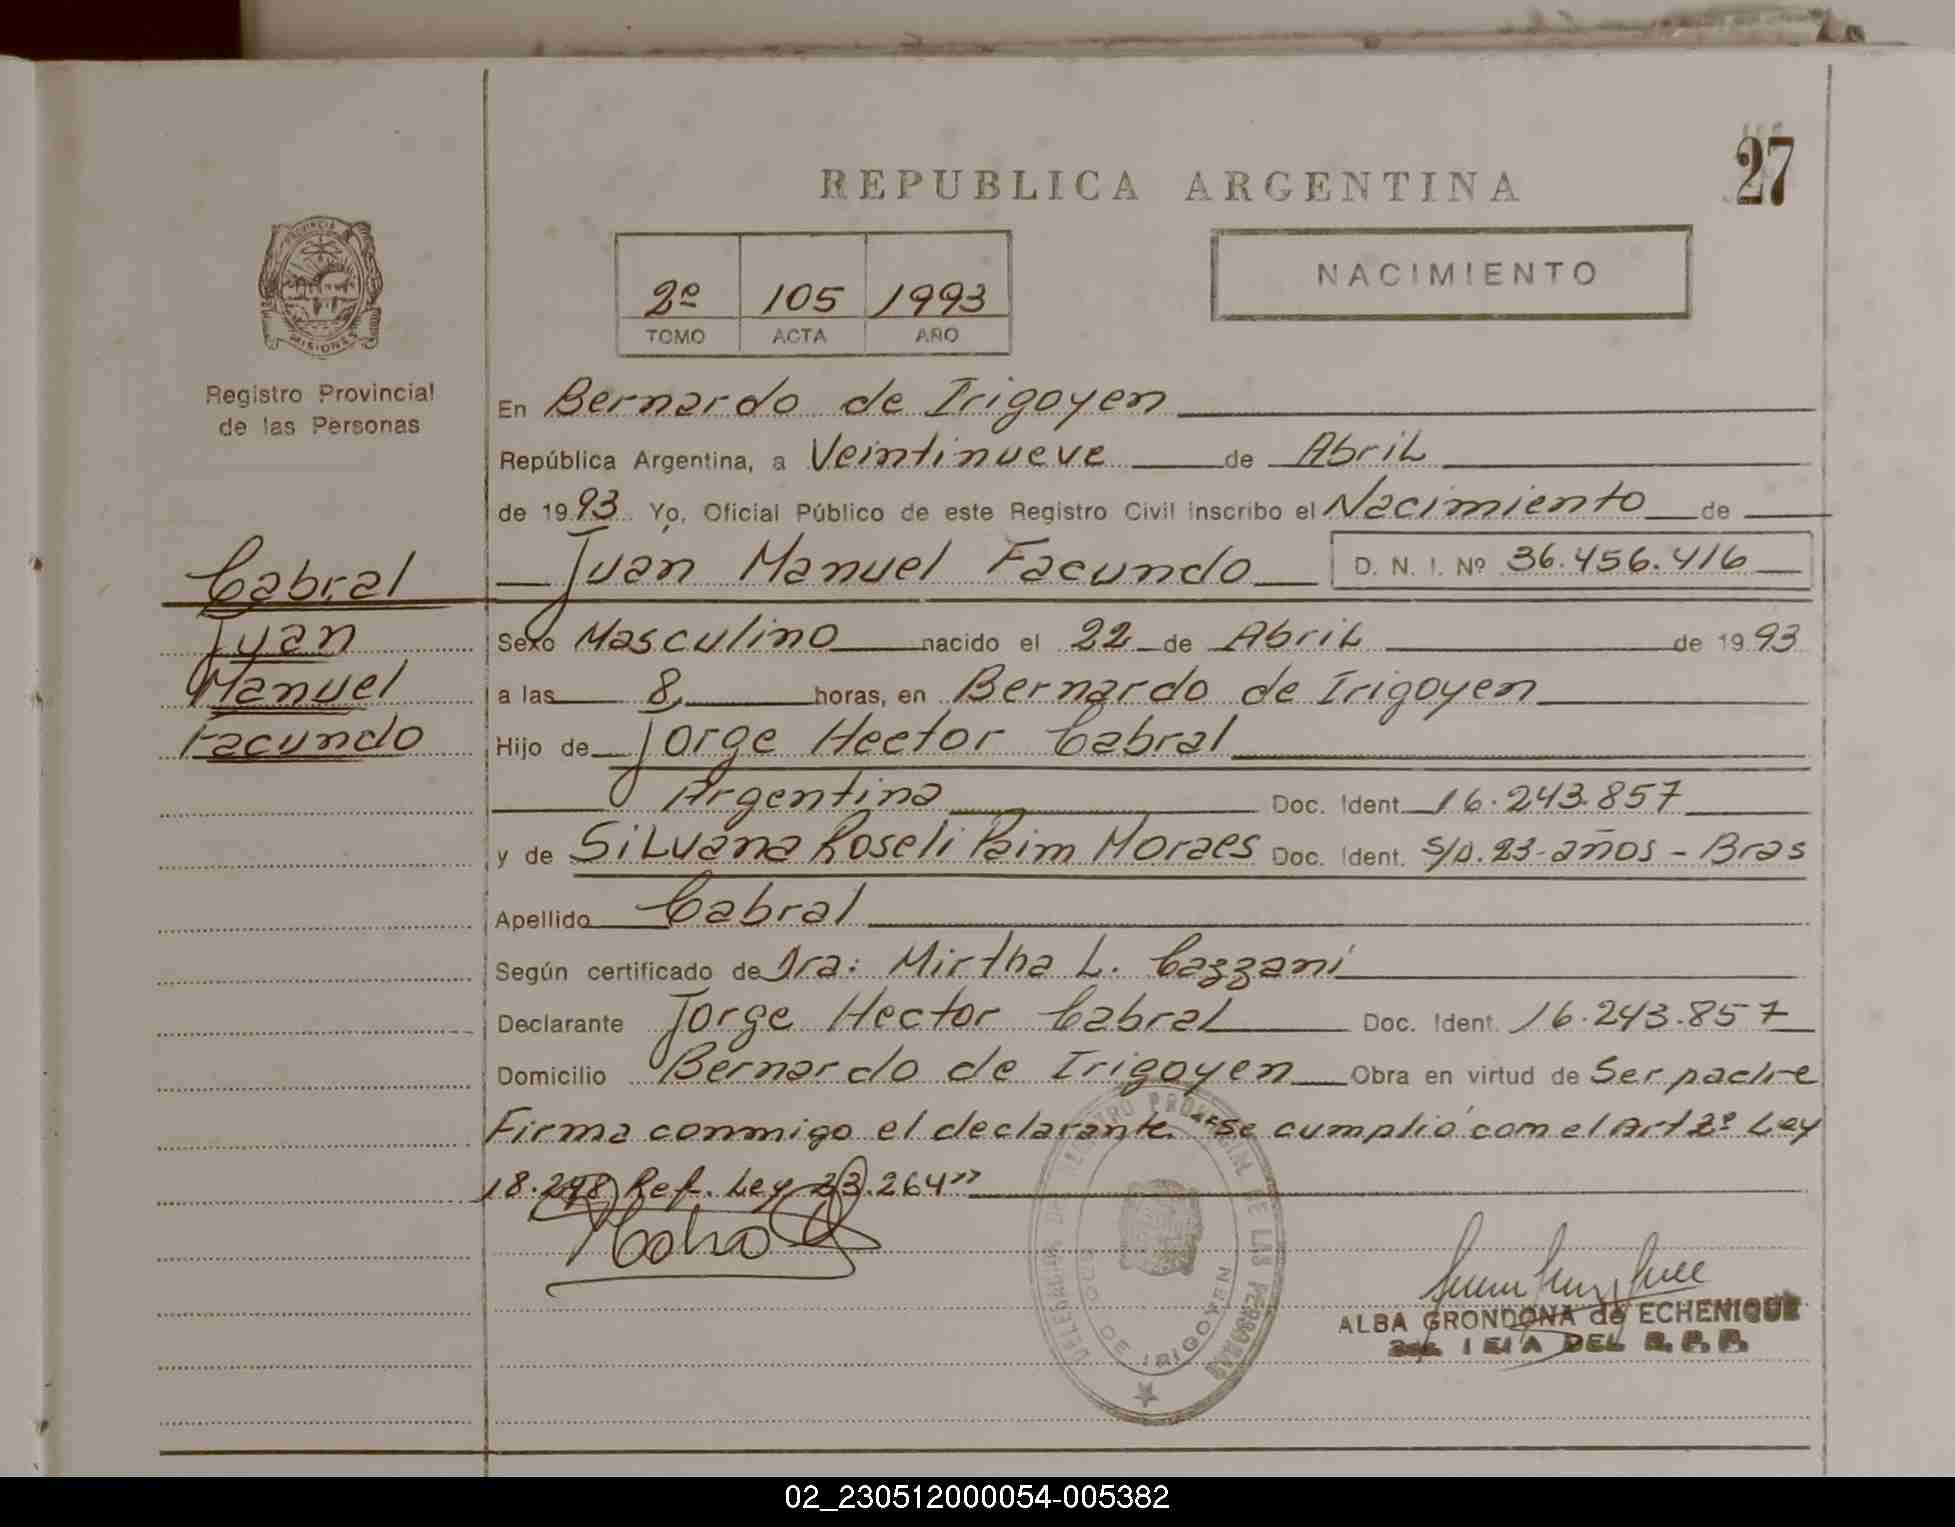 27
REPUBLICA ARGENTINA
PROVINCIA
MISIONES
NACIMIENTO
2º 105 1993
TOMO ACTA AÑO
Registro Provincial
de las Personas
En Bernardo de Irigoyen
República Argentina, a Veintinueve de Abril
de 1993 Yo, Oficial Público de este Registro Civil inscribo el Nacimiento de
Cabral
Juan Manuel Facundo D. N. I. Nº 36.456.416
Juan
Sexo Masculino nacido el 22 de Abril de 1993
Manuel
a las 8 horas, en Bernardo de Irigoyen
Facundo
Hijo de Jorge Hector Cabral
Argentina Doc. Ident. 16.243.857
y de Silvana Roseli Paim Moraes Doc. Ident. S/D. 23-años - Bras
Apellido Cabral
Según certificado de Dra: Mirtha L. Cazzani
Declarante Jorge Hector Cabral Doc. Ident. 16.243.857
Domicilio Bernardo de Irigoyen Obra en virtud de Ser padre
Firma conmigo el declarante "se cumplió com el Art 2º Ley
18.248 Ref. Ley 23.264"
DE LAS PERSONAS
DE IRIGOYEN
ALBA GRONDONA de ECHENIQUE
DEL R. P. P.
02_230512000054-005382